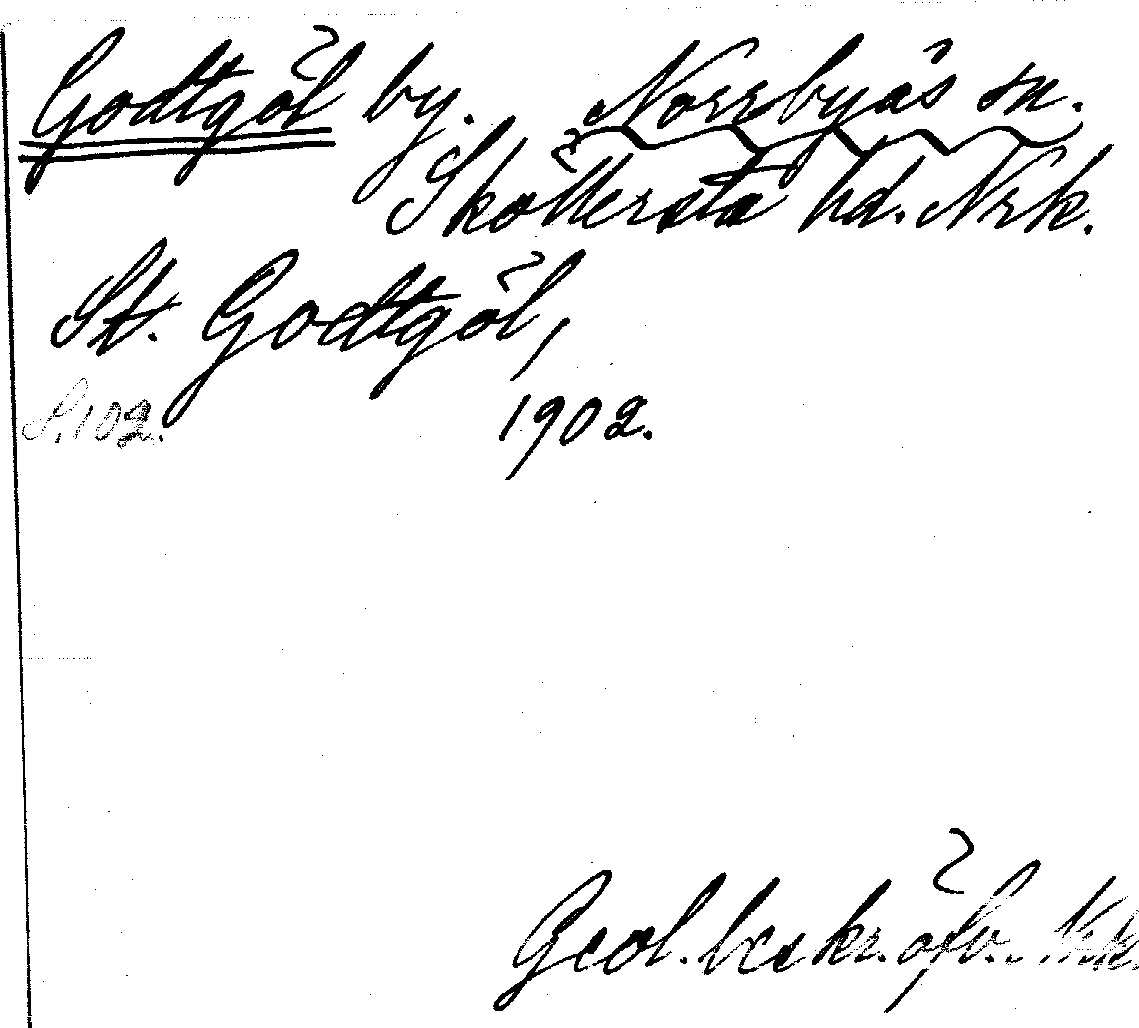 Godtgöl by. Norrbyås sn.
Sköllersta hd. Nrk.
St. Godtgöl,
S. 102. 1902.
Geol. beskr. öfv. Nrk.